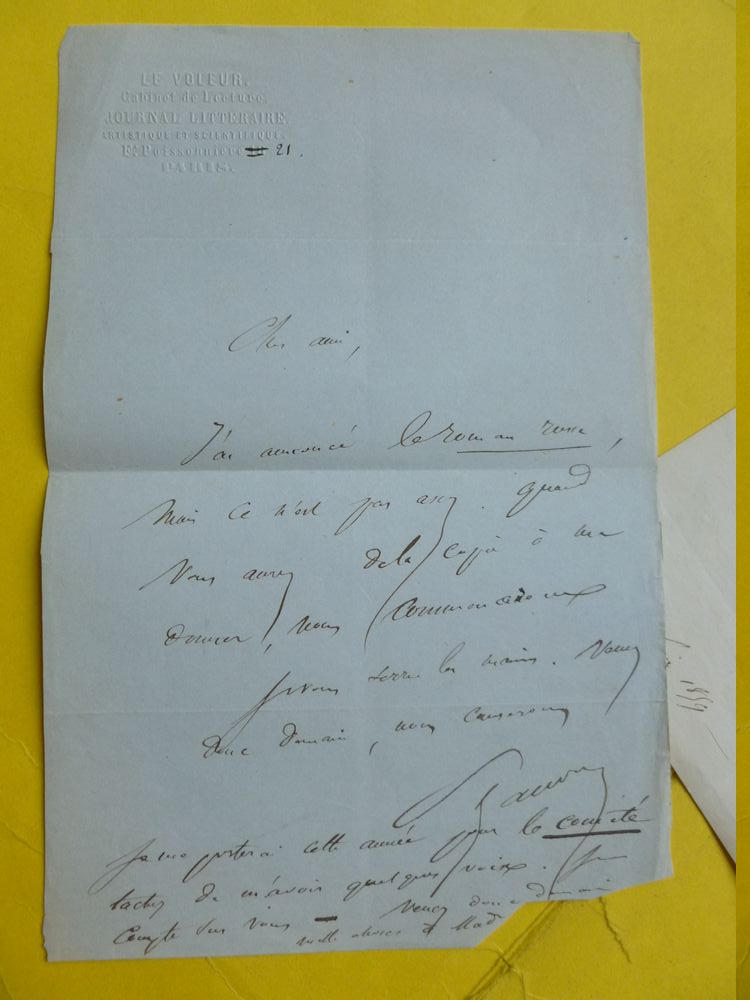 LE VOLEUR.
Cabinet de Lecture,
JOURNAL LITTÉRAIRE,
ARTISTIQUE ET SCIENTIFIQUE.
Fg Poissonnière 21.
PARIS.
Cher ami,
J'ai annoncé le roman russe,
Mais ce n'est pas assez. quand
Vous aurez de la copie à me
donner, nous commencerons
Je vous serre les mains. Venez
donc demain, nous causerons
Je me porterai cette année pour le comité
tachez de m'avoir quelques voix. Je
Compte sur vous — Venez donc demain
mille choses à Mad
1859